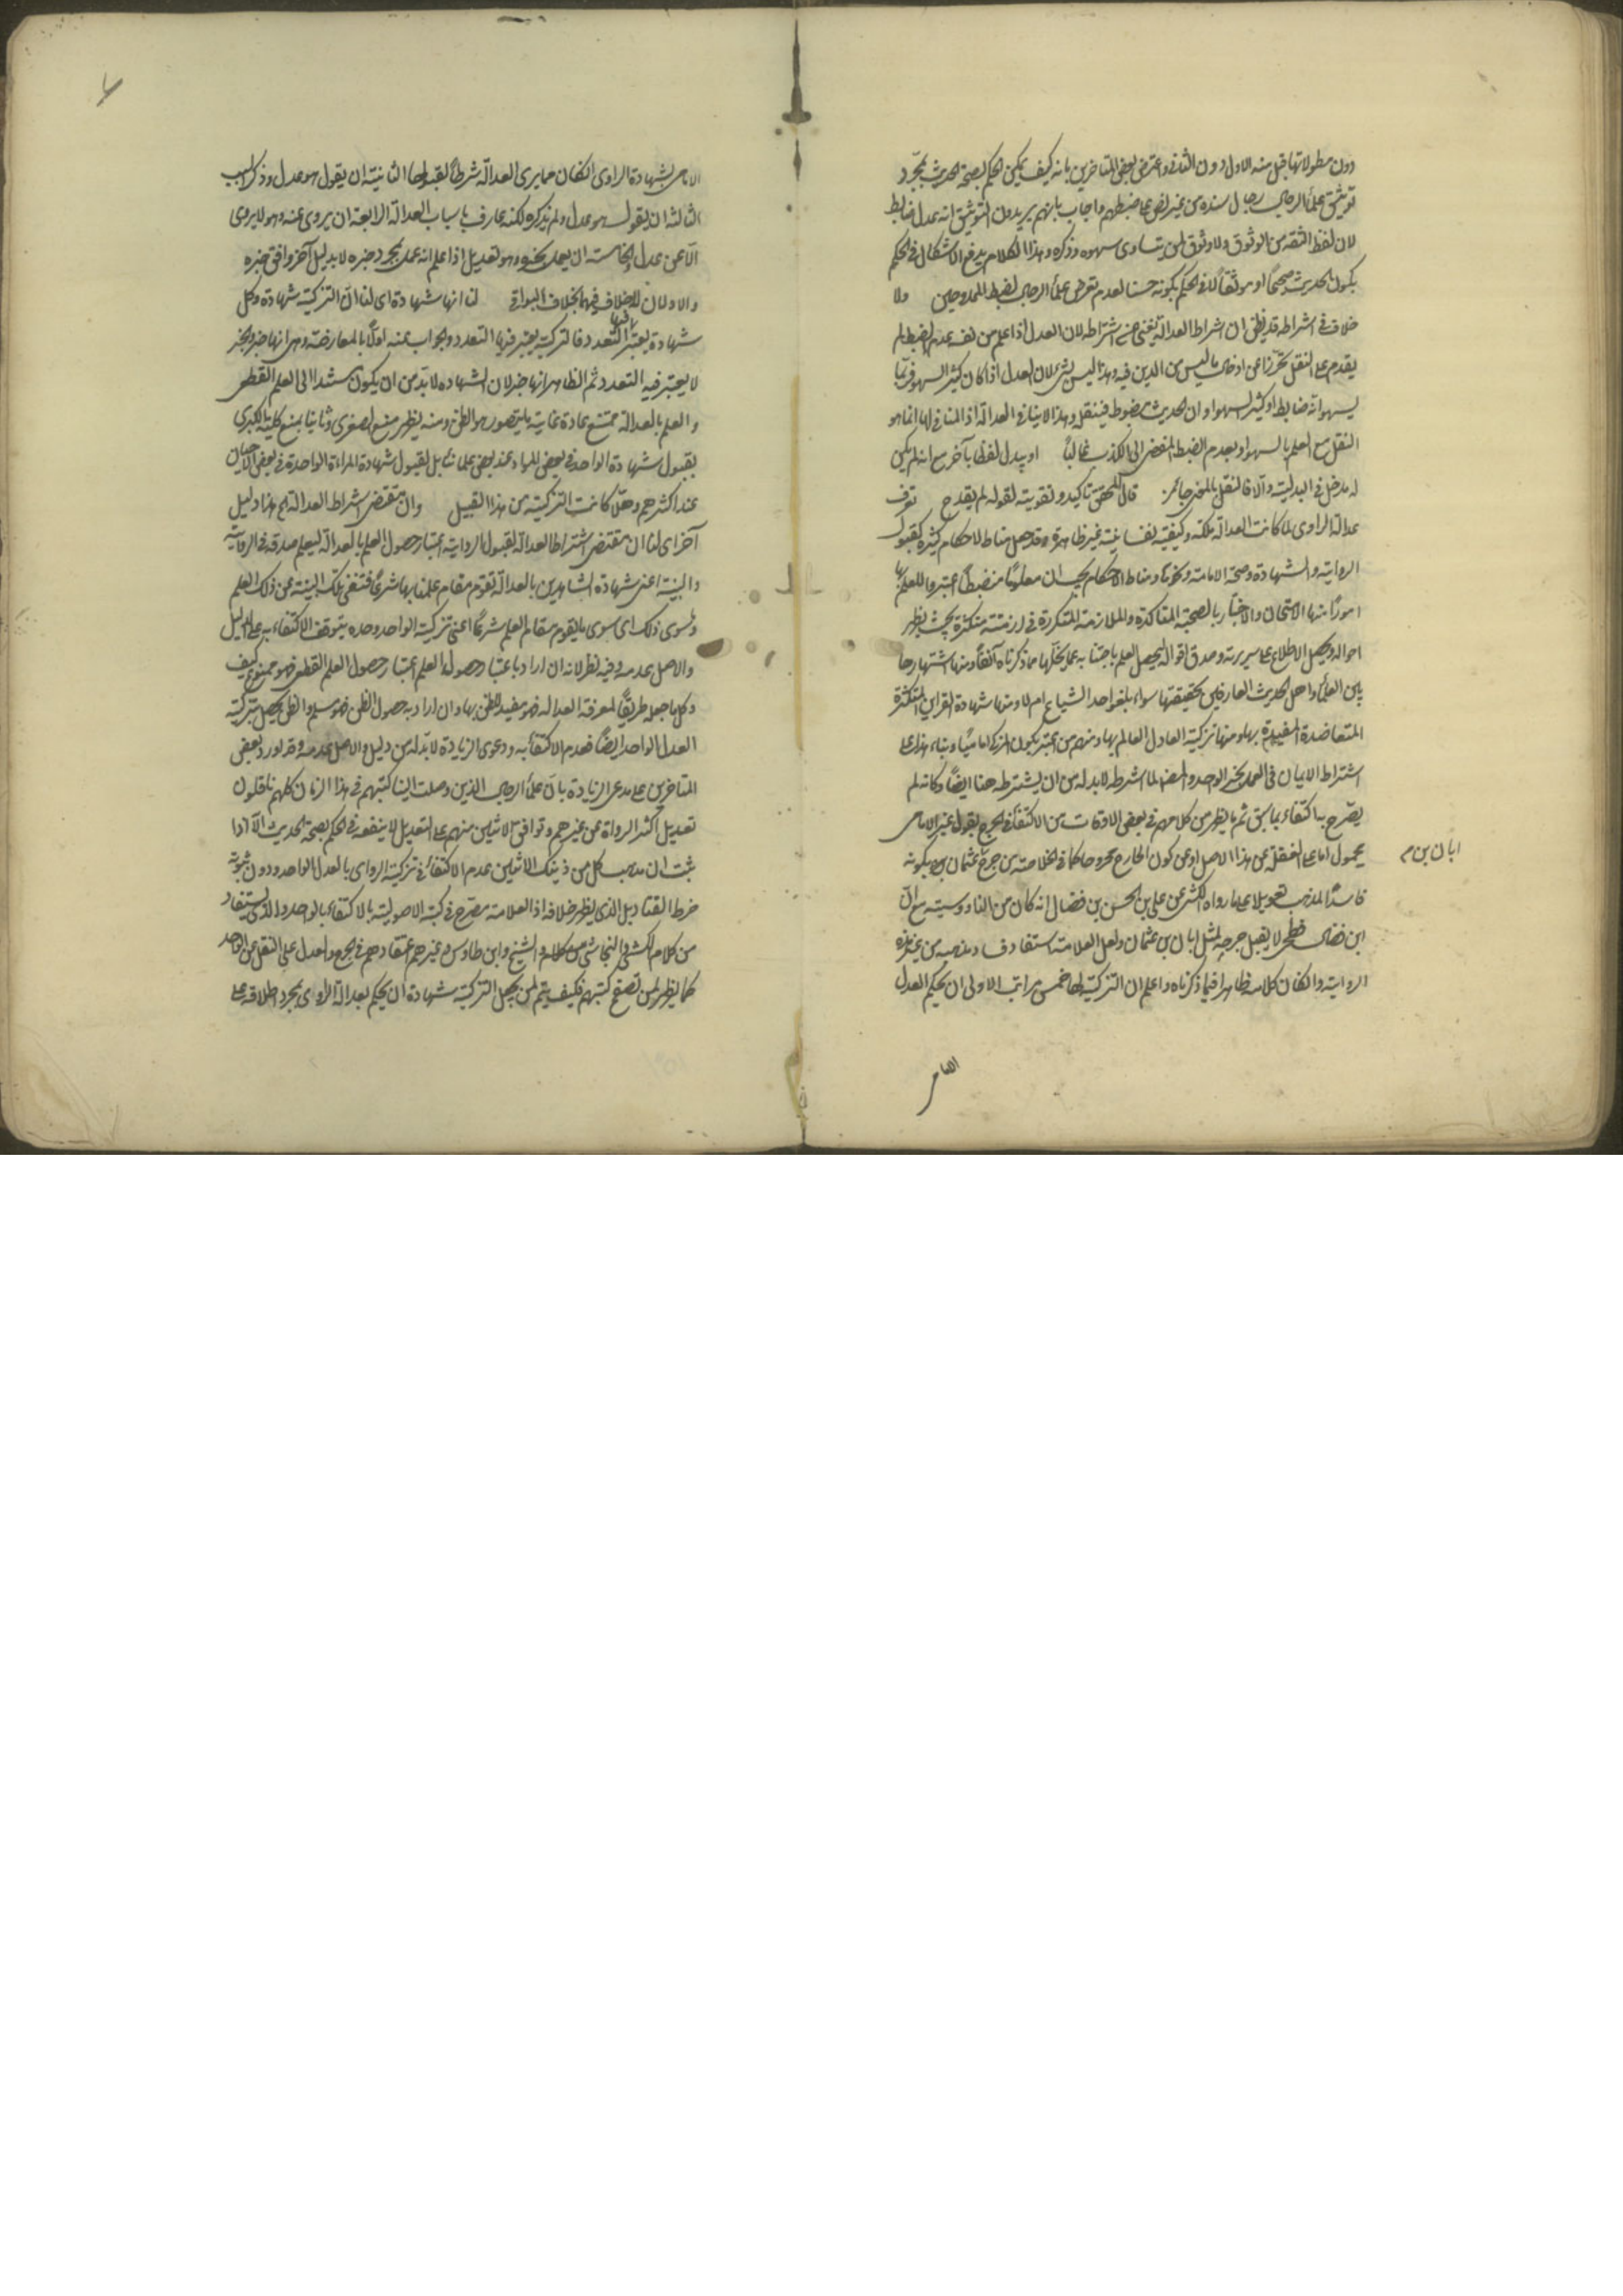 دون مطولاتها قبل منه الاول دون الثاني واعترض بعض المتأخرين بانه كيف يمكن الحكم بصحة الحديث بمجرد
توثيق علماء الرجال رجال سنده من غير نص على ضبطهم واجاب بانهم يريدون بالتوثيق انه عدل ضابط
لان لفظ الثقة من الوثوق ولا وثوق بمن يتساوى سهوه وذكره وهذا الكلام يدفع الاشكال في الحكم
بكون الحديث صحيحا او موثقا لا في الحكم بكونه حسنا لعدم تعرض علماء الرجال لضبط الممدوحين ولا
خلاف في اشتراطه قد يظن ان اشتراط العدالة يغني عن اشتراطه لان العدل اذا علم من نفسه عدم الضبط لم
يقدم على النقل تحرزا عن ادخال ما ليس من الدين فيه وهذا ليس بشيء لان العدل اذا كان كثير السهو فربما
يسهو انه ضابط او كثير السهو او ان الحديث مضبوط فينقله وهذا لا ينافي العدالة اذ المنافي لها انما هو
النقل مع العلم بالسهو او بعدم الضبط المفضي الى الكذب غالبا او يبدل لفظا بآخر مع انه لم يكن
له مدخل في البدلية والا فالنقل بالمعنى جائز قال المحقق تاكيد وتقوية لقوله لم يقدح تعرف
عدالة الراوي لما كانت العدالة ملكة وكيفية نفسانية غير ظاهرة وقد جعل مناطا لاحكام كثيرة كقبول
الرواية والشهادة وصحة الامامة ونحوها ومناط الاحكام يجب ان معلوما منضبطا اعتبروا للعلم بها
امورا منها الامتحان والاختبار بالصحبة المتاكدة والملازمة المتكررة في ازمنة متكثرة بحيث يظهر
احواله ويحصل الاطلاع على سريرته وصدق اقواله ليحصل العلم باجتنابه عما يخل بها مما ذكرناه آنفا ومنها اشتهارها
بين العلماء واهل الحديث العارفين بحقيقتها سواء بلغوا حد الشياع ام لا ومنها شهادة القراين المتكثرة
المتعاضدة المفيدة بها ومنها تزكية العادل العالم بها ومنهم من اعتبر كون المزكي اماميا وبناء هذا على
اشتراط الايمان في العمل بخبر الواحد والمصنف لما اشترطه لا بد له من ان يشترطه هنا ايضا وكانه لم
يصرح به اكتفاء بما سبق ثم ما يظهر من كلامهم في بعض الاوقات من الاكتفاء في الجرح بقول غير الامامي
محمول اما على الغفلة عن هذا الاصل او عن كون الجارح مجروحا كما في الخلاصة من جرح عثمان بكونه
ابان بن م
فاسد المذهب تعويلا على ما رواه الكشي عن علي بن الحسن بن فضال انه كان من الناووسية مع ان
ابن فضال فطحي لا يقبل جرحه لمثل ابان بن عثمان ولعل العلامة استفاد فساد مذهبه من غير هذه
الرواية وان كان كلامه ظاهرا فيما ذكرناه واعلم ان التزكية لها خمس مراتب الاولى ان يحكم العدل
الامامي
الامامي بشهادة الراوي ان كان ممن يرى العدالة شرطا لقبولها الثانية ان يقول هو عدل وذكر السبب
الثالثة ان يقول هو عدل ولم يذكره لكنه عارف باسباب العدالة الرابعة ان يروي عنه وهو لا يروي
الا عن عدل الخامسة ان يعمل بخبره وهو تعديل اذا علم انه عمل بمجرد خبره لا بدليل آخر وافق خبره
والاولان لا خلاف فيهما بخلاف البواقي لنا انها شهادة اي لنا ان التزكية شهادة وكل
شهادة يعتبر فيها التعدد فالتزكية يعتبر فيها التعدد والجواب عنه اولا بالمعارضة وهي انها خبر والخبر
لا يعتبر فيه التعدد ثم الظاهر انها خبر لان الشهادة لا بد من ان يكون مستندا الى العلم القطعي
والعلم بالعدالة ممتنع عادة غاية ما يتصور هو الظن ومنه يظهر منع الصغرى وثانيا بمنع كلية الكبرى
بقبول شهادة الواحد في بعض المواد عند بعض علمائنا بل لقبول شهادة المراة الواحدة في بعض الاحيان
عند اكثرهم وهلا كانت التزكية من هذا القبيل وان مقتضى اشتراط العدالة الخ هذا دليل
آخر اي لنا ان مقتضى اشتراط العدالة لقبول الرواية اعتبار حصول العلم بالعدالة ليعلم صدقه في الرواية
والبينة اعني شهادة الشاهدين بالعدالة تقوم مقام علمنا بها شرعا فتغني تلك البينة عن ذلك العلم
وسوى ذلك اي سوى ما يقوم مقام العلم شرعا اعني تزكية الواحد وحده يتوقف الاكتفاء به على الدليل
والاصل عدمه وفيه نظر لانه ان اراد باعتبار حصول العلم اعتبار حصول العلم القطعي فهو ممنوع كيف
وكل ما جعله طريقا لمعرفة العدالة فهو مفيد للظن بها وان اراد به حصول الظن فهو مسلم والظن يحصل بتزكية
العدل الواحد ايضا فعدم الاكتفاء به ودعوى الزيادة لا بد له من دليل والاصل عدمه وقد اورد بعض
المتاخرين على مدعي الزيادة بان علماء الرجال الذين وصلت الينا كتبهم في هذا الزمان كلهم ناقلون
تعديل اكثر الرواة عن غيرهم وتوافق الاثنين منهم على التعديل لا ينفعه في الحكم بصحة الحديث الا اذا
ثبت ان مذهب كل من ذينك الاثنين عدم الاكتفاء في تزكية الراوي بالعدل الواحد ودون ثبوته
خرط القتاد بل الذي يظهر خلافه اذ العلامة مصرح في كتبه الاصولية بالاكتفاء بالواحد والذي يستفاد
من كلام الكشي والنجاشي والشيخ وابن طاوس وغيرهم اعتقادهم في الجرح والعدل على النقل عن الواحد
كما يظهر لمن تصفح كتبهم فكيف يتم لمن يجعل التزكية شهادة ان يحكم بعدالة الراوي بمجرد اطلاقه على